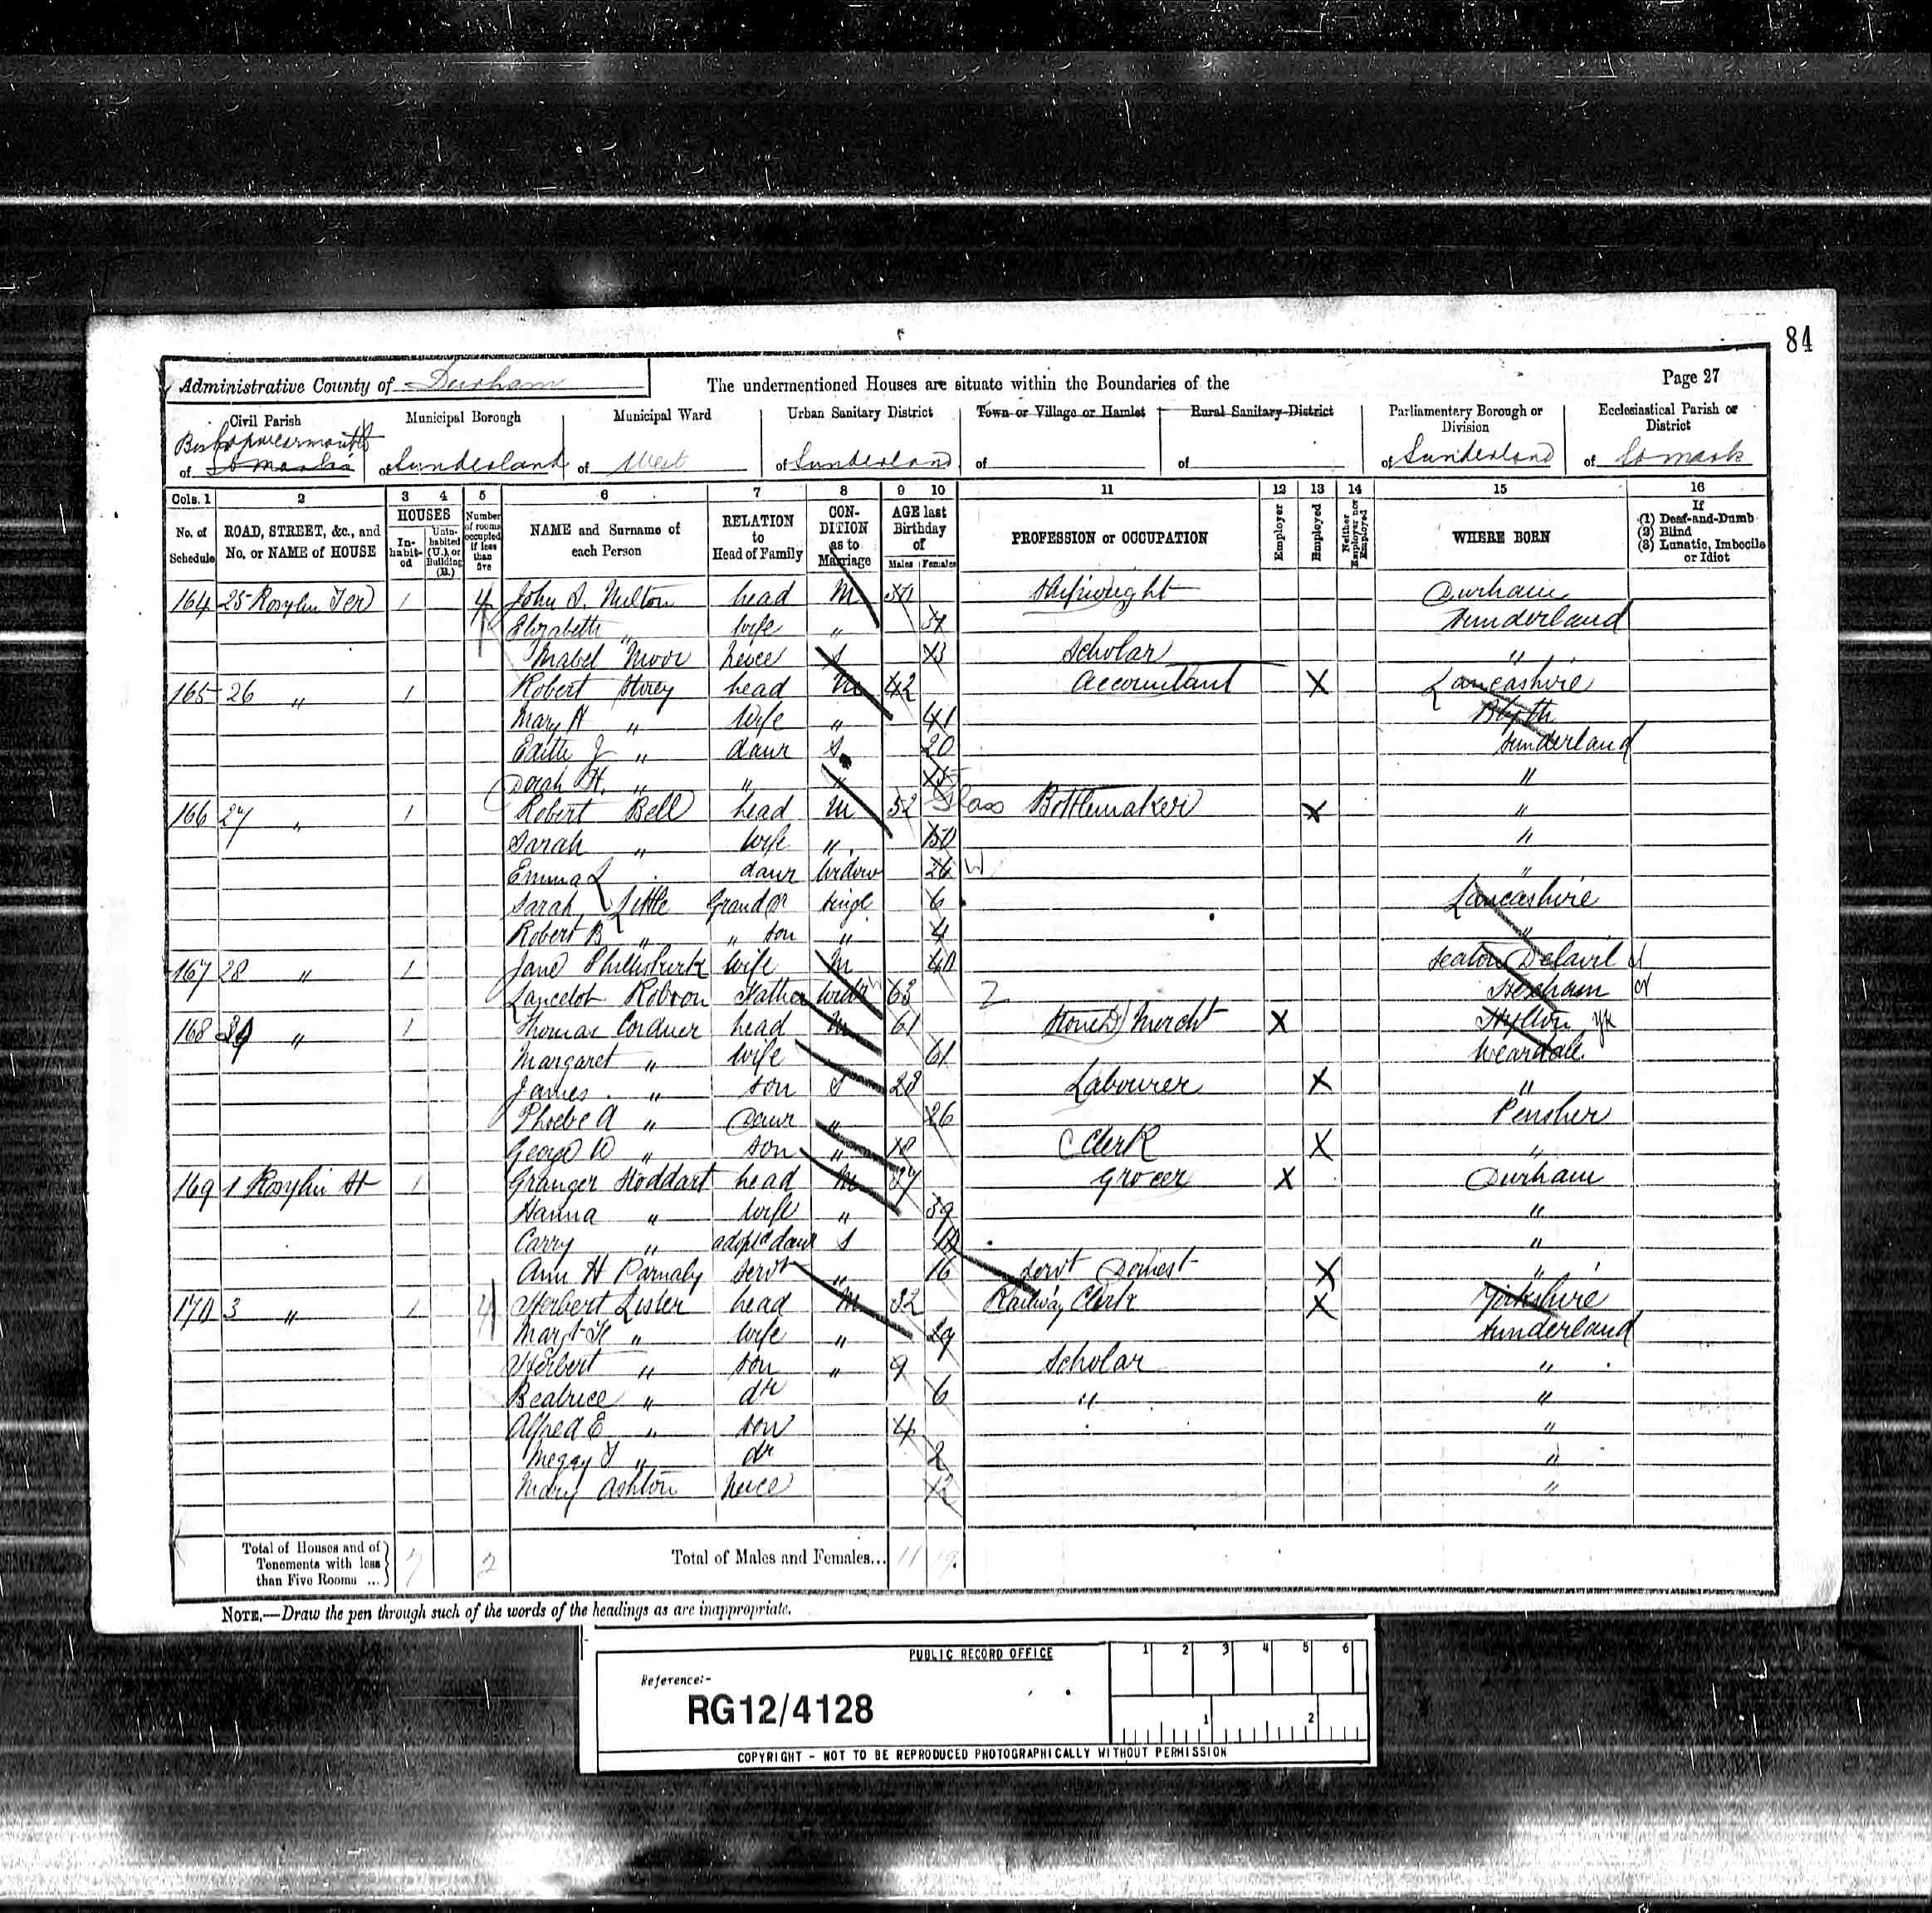 84
Administrative County of Durham The undermentioned Houses are situate within the Boundaries of the Page 27
Civil Parish Municipal Borough Municipal Ward Urban Sanitary District Town or Village or Hamlet Rural Sanitary District Parliamentary Borough or Division Ecclesiastical Parish or District
Bishopwearmouth
of St Marks of Sunderland of West of Sunderland of of of Sunderland of St Mark
Cols. 1 2 3 4 5 6 7 8 9 10 11 12 13 14 15 16
No. of Schedule ROAD, STREET, &c., and No. or NAME of HOUSE HOUSES In-habit-ed Unin-habited (U.), or Building (B.) Number of rooms occupied if less than five NAME and Surname of each Person RELATION to Head of Family CON-DITION as to Marriage AGE last Birthday of Males Females PROFESSION or OCCUPATION Employer Employed Neither Employer nor Employed WHERE BORN If (1) Deaf-and-Dumb (2) Blind (3) Lunatic, Imbecile or Idiot
164 25 Rosylin Ter 1 4 John S. Milton head M Shipwright Durham
Elizabeth " wife " Sunderland
Mabel Moor neice S 13 Scholar "
165 26 " 1 Robert Storey head M 42 Accountant X Lancashire
Mary A " wife " 41 Blyth
Edith J " daur S 20 Sunderland
Sarah H. " " " 15 "
166 27 " 1 Robert Bell head M 52 Glass Bottlemaker X "
Sarah " wife " 50 "
Emma L daur Widow 26 W "
Sarah Little Grand dr single 6 Lancashire
Robert B " " son " 4 "
167 28 " 1 Jane Philliskirk wife M 40 Seaton Delavil
Lancelot Robson Father widr 63 Hexham
168 " 1 Thomas Cordner head M 61 Mercht X Hylton
Margaret " wife 61 Weardale
James " son S 28 Labourer X "
Phoebe A " Daur " 26 Pensher
George W " son " 18 Clerk X "
169 1 Rosylin St 1 Granger Stoddart head M 37 Grocer X Durham
Hanna " wife " 39 "
Carry " adoptd daur S 10 "
Ann H Parnaby Servt " 16 Servt Domest X "
170 3 " 1 4 Herbert Lister head M 32 Railway Clerk X Yorkshire
Margt H " wife " 29 Sunderland
Herbert " son " 9 Scholar "
Beatrice " dr 6 " "
Alfred E " son 4 "
Meggy " dr 2 "
Mary Ashton neice 12 "
Total of Houses and of Tenements with less than Five Rooms ... 7 2 Total of Males and Females... 11 19
NOTE.—Draw the pen through such of the words of the headings as are inappropriate.
PUBLIC RECORD OFFICE 1 2 3 4 5 6
Reference:-
RG12/4128 1 2
COPYRIGHT - NOT TO BE REPRODUCED PHOTOGRAPHICALLY WITHOUT PERMISSION